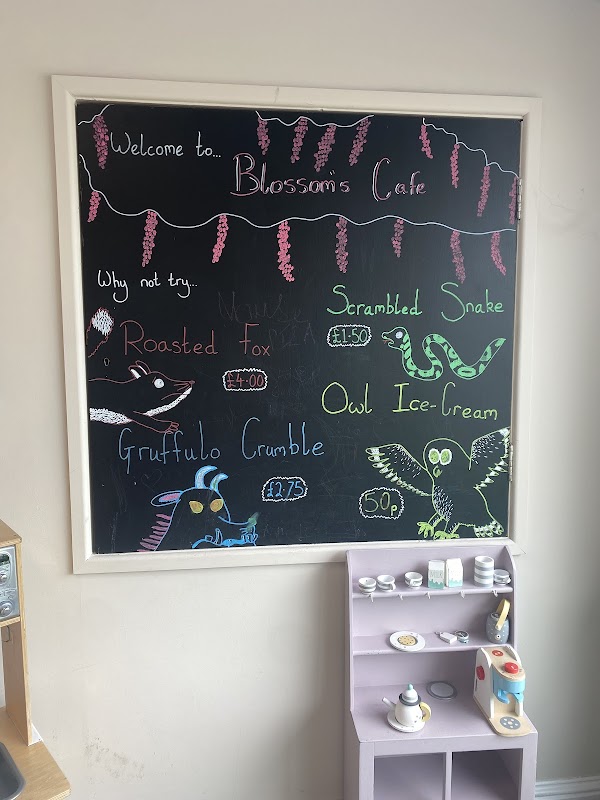 Welcome to...
Blossom's Cafe
Why not try...
Scrambled Snake
£1.50
Roasted Fox
£4.00
Owl Ice-Cream
50p
Gruffulo Crumble
£2.75